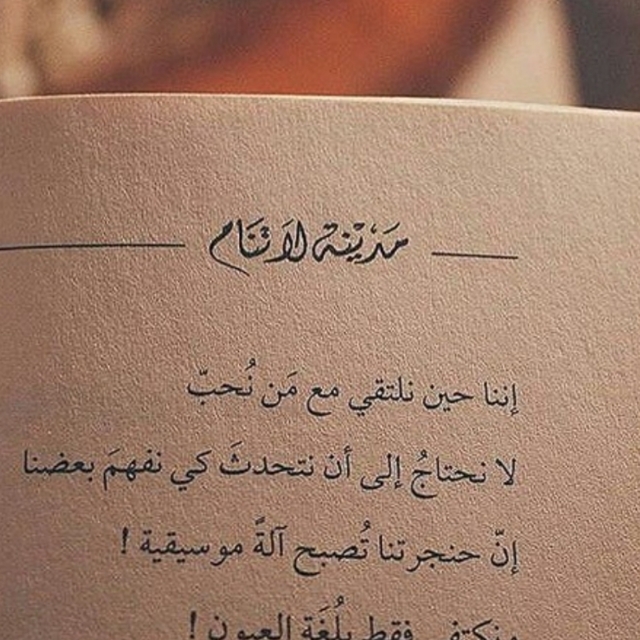 مَدْيَنة لاَ تَنَام
إننا حين نلتقي مع مَن نُحبّ
لا نحتاجُ إلى أن نتحدثَ كي نفهمَ بعضنا
إنّ حنجرتنا تُصبح آلةً موسيقية !
ونكتفي فقط بلُغَة العيون !